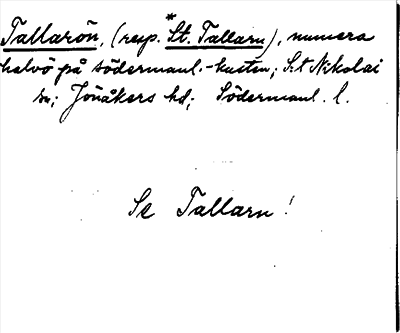 Tallarön, (resp. *St. Tallarn), numera
halvö på södermanl.-kusten; S:t Nikolai
sn; Jönåkers hd; Södermanl. l.
Se Tallarn!